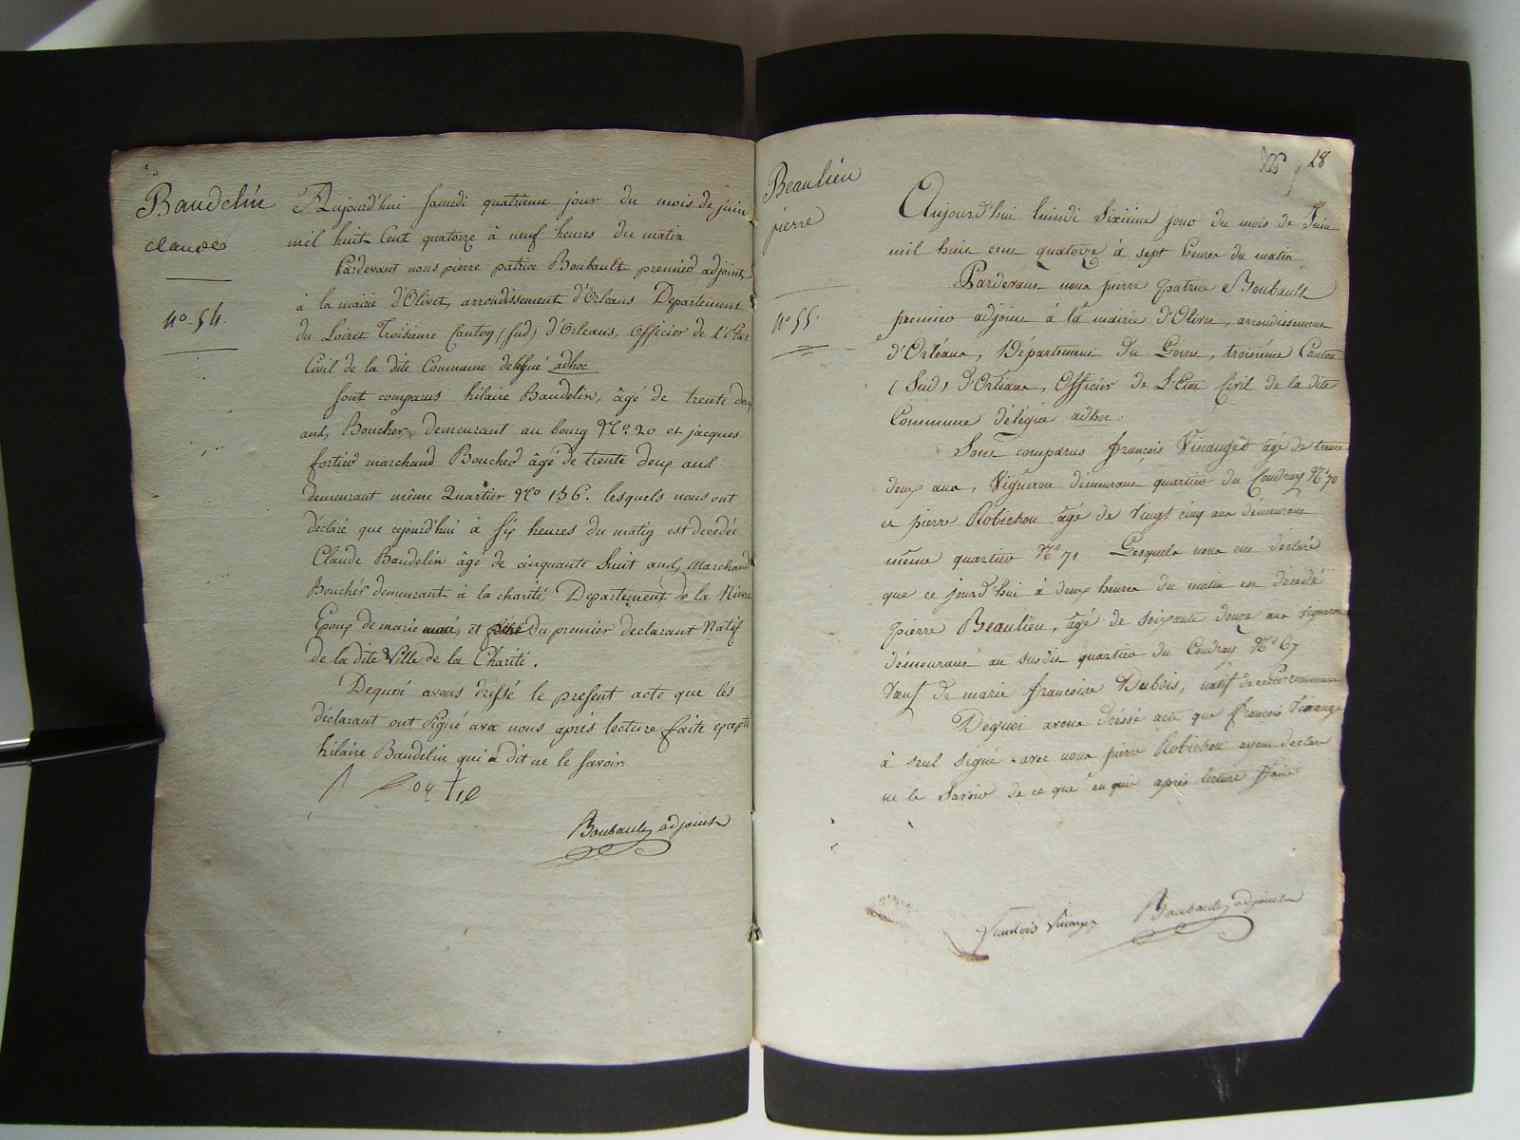 Baudelin
Claude
N° 54.
Aujourd'hui samedi quatrieme jour du mois de juin
mil huit Cent quatorze à neuf heures du matin
Pardevant nous pierre patrice Boubault premier adjoint
à la mairie d'Olivet, arrondissement d'Orléans Departement
du Loiret Troisieme Canton (sud) d'Orléans, officier de l'Etat
Civil de la dite Commune delégué adhoc
sont comparus hilaire Baudelin, âgé de trente deux
ans, Boucher, demeurant au bourg N° 20 et jacques
fortier marchand Boucher âgé de trente deux ans
demeurant même Quartier N° 136. lesquels nous ont
déclaré que cejourd'hui à six heures du matin est decedée
Claude Baudelin âgé de cinquante huit ans, Marchand
Boucher demeurant à la charité, Departement de la Nievre
Epoux de marie et du premier declarant Natif
de la dite Ville de la Charité.
Dequoi avons dressé le present acte que les
déclarant ont signé avec nous après lecture faite excepté
hilaire Baudelin qui a dit ne le savoir
Boubault adjoint
18
Beaulieu
pierre
N° 55.
Aujourd'hui lundi sixieme jour du mois de Juin
mil huit cent quatorze à sept heures du matin
Pardevant nous pierre patrice Boubault
premier adjoint à la mairie d'Olivet, arrondissement
d'Orléans, Département du Loiret, troisième Canton
(Sud) d'Orléans, Officier de l'Etat Civil de la dite
Commune délégué adhoc.
Sont comparus françois Vinauger âgé de trente
deux ans, Vigneron demeurant quartier du Coudray N° 70
et pierre Robichon âgé de vingt cinq ans demeurant
même quartier N° 71 Lesquels nous ont declaré
que ce jourd'hui à deux heures du matin est décédé
pierre Beaulieu, âgé de soixante douze ans vigneron
demeurant au susdit quartier du Coudray N° 67
Veuf de marie françoise Dubois, natif de cette Commune
Dequoi avons dressé acte que françois Vinauger
à seul signé avec nous pierre Robichon ayant declaré
ne le savoir de ce que enquis après lecture faite
francois Vinauger
Boubault adjoint